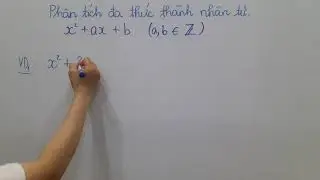 Phân tích đa thức thành nhân tử.
x² + ax + b (a, b ∈ ℤ)
VD₁ x² +